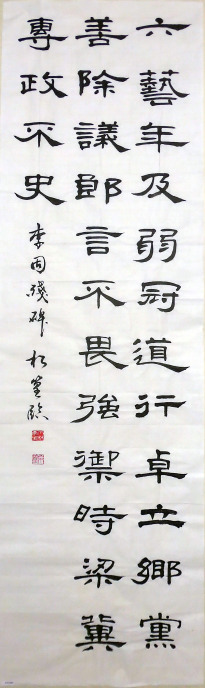 六藝年及弱冠道行卓立鄉黨
善除議郎言不畏強御時梁冀
專政不史
李固殘碑 松臨